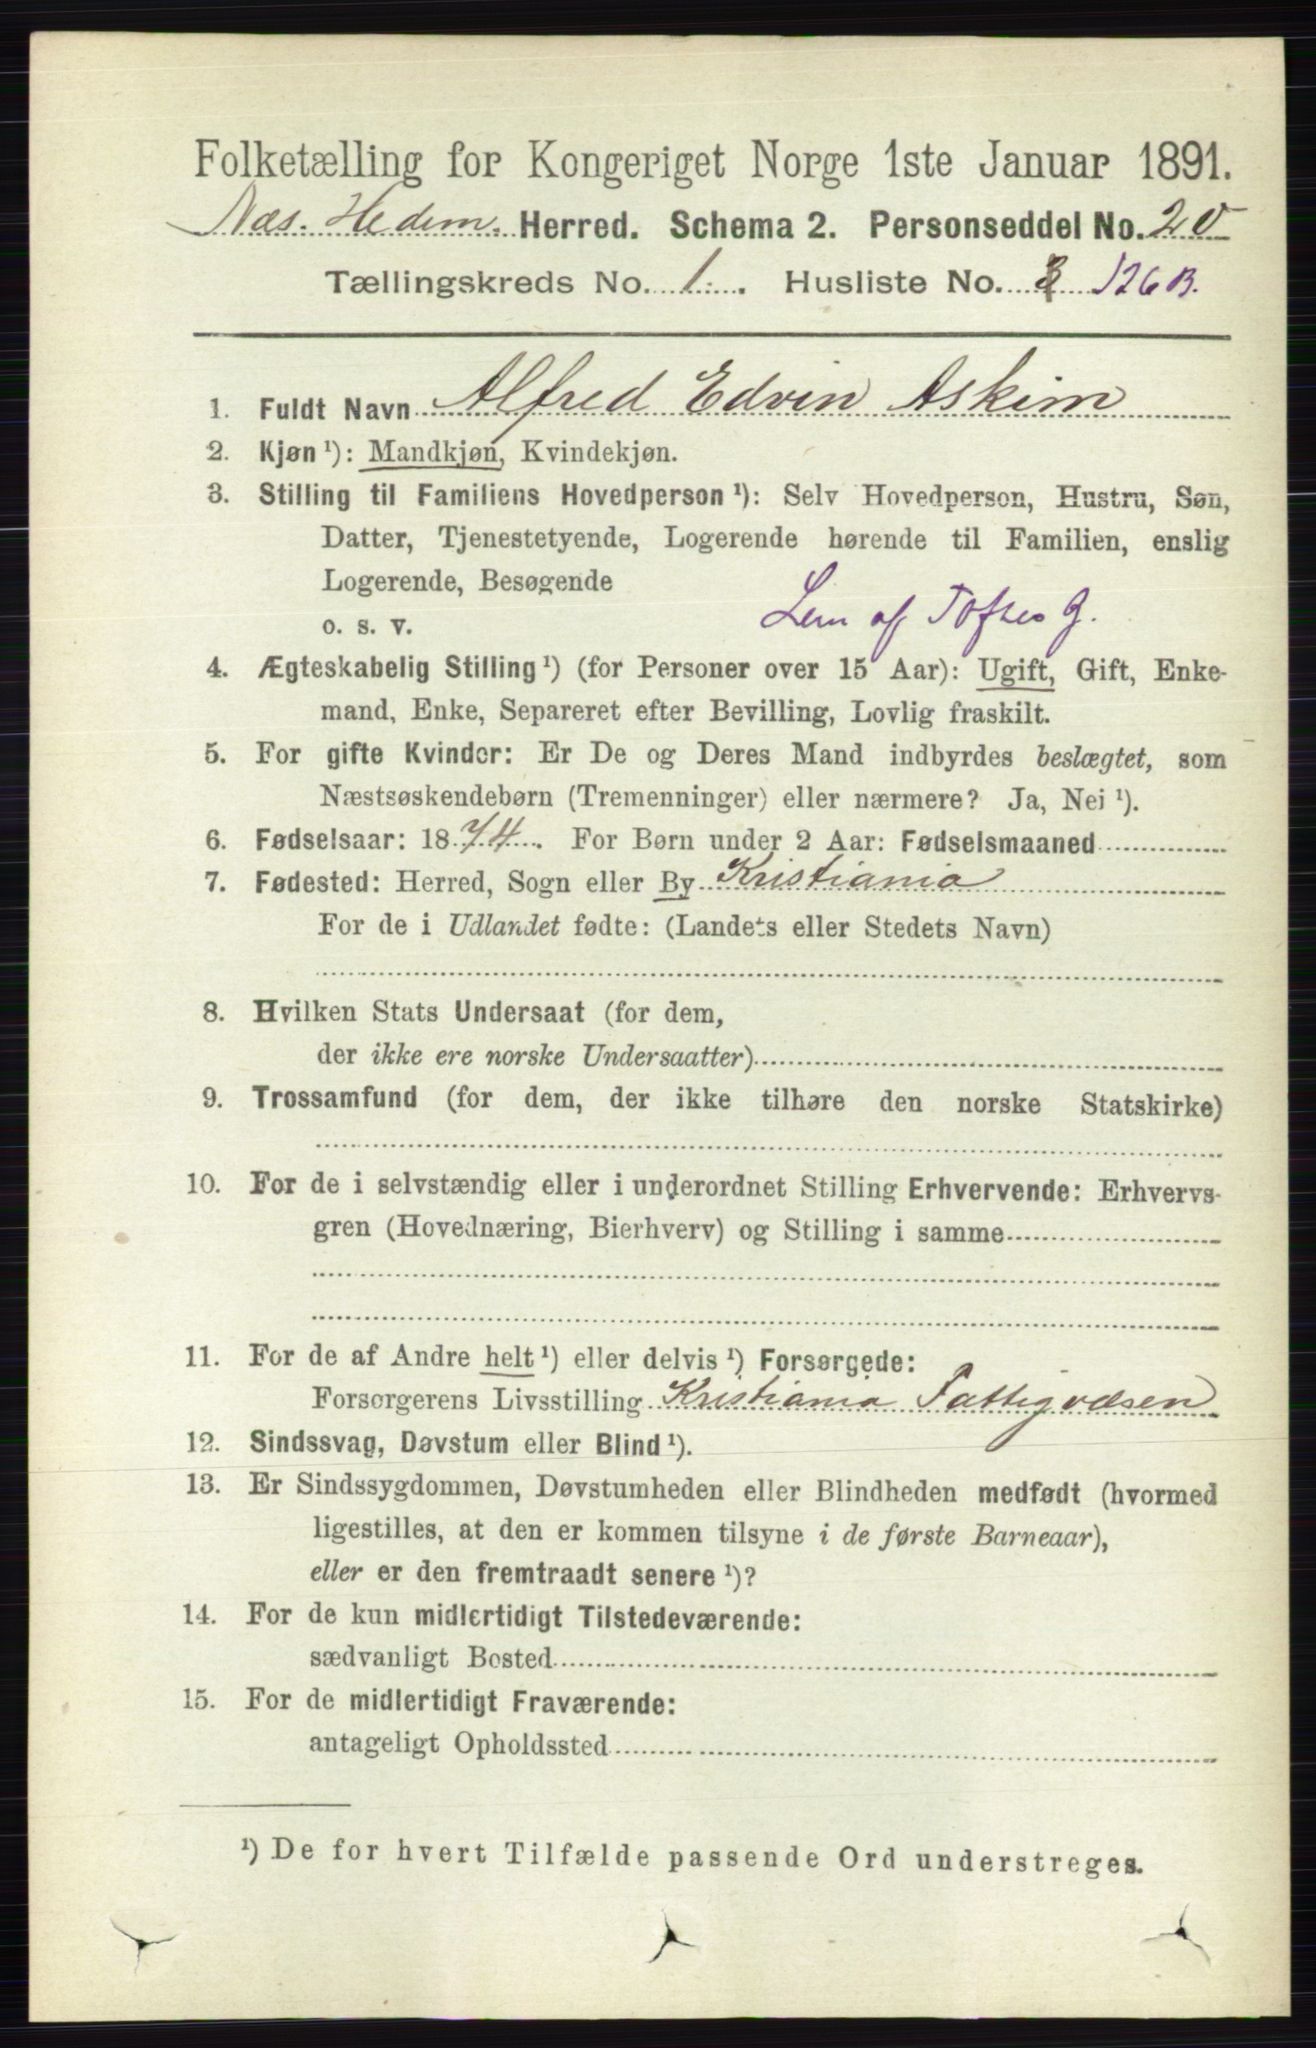 Folketælling for Kongeriget Norge 1ste Januar 1891.
Næs. Hedem. Herred. Schema 2. Personseddel No. 20
Tællingskreds No. 1. Husliste No. 126 B.
1. Fuldt Navn Alfred Edvin Askim
2. Kjøn ¹): Mandkjøn, Kvindekjøn.
3. Stilling til Familiens Hovedperson ¹): Selv Hovedperson, Hustru, Søn,
Datter, Tjenestetyende, Logerende hørende til Familien, enslig
Logerende, Besøgende
o. s. v. Lem af Toftes G.
4. Ægteskabelig Stilling ¹) (for Personer over 15 Aar): Ugift, Gift, Enke-
mand, Enke, Separeret efter Bevilling, Lovlig fraskilt.
5. For gifte Kvinder: Er De og Deres Mand indbyrdes beslægtet, som
Næstsøskendebørn (Tremenninger) eller nærmere? Ja, Nei ¹).
6. Fødselsaar: 1874. For Børn under 2 Aar: Fødselsmaaned
7. Fødested: Herred, Sogn eller By Kristiania
For de i Udlandet fødte: (Landets eller Stedets Navn)
8. Hvilken Stats Undersaat (for dem,
der ikke ere norske Undersaatter)
9. Trossamfund (for dem, der ikke tilhøre den norske Statskirke)
10. For de i selvstændig eller i underordnet Stilling Erhvervende: Erhvervs-
gren (Hovednæring, Bierhverv) og Stilling i samme
11. For de af Andre helt ¹) eller delvis ¹) Forsørgede:
Forsørgerens Livsstilling Kristiania Fattigvæsen
12. Sindssvag, Døvstum eller Blind ¹).
13. Er Sindssygdommen, Døvstumheden eller Blindheden medfødt (hvormed
ligestilles, at den er kommen tilsyne i de første Barneaar),
eller er den fremtraadt senere ¹)?
14. For de kun midlertidigt Tilstedeværende:
sædvanligt Bosted
15. For de midlertidigt Fraværende:
antageligt Opholdssted
¹) De for hvert Tilfælde passende Ord understreges.